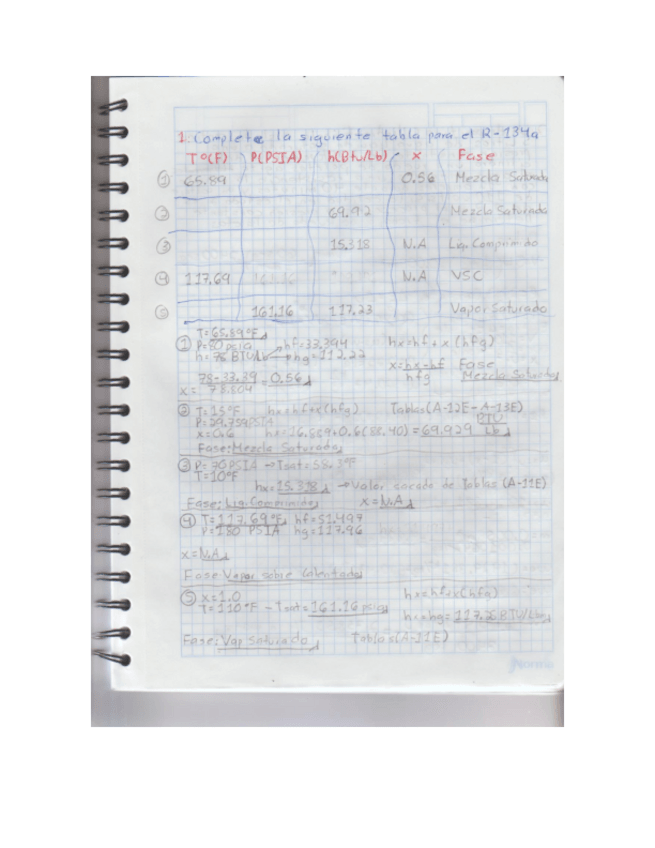 1. Complete la siguiente tabla para el R-134a
T°(F) P(PSIA) h(Btu/Lb) x Fase
① 65.89 0.56 Mezcla Saturada
② 69.92 Mezcla Saturada
③ 15.318 N.A Liq. Comprimido
④ 117.69 N.A VSC
⑤ 161.16 117.23 Vapor Saturado
T=65.89°F
① P=80 psia hf=33.394 hx=hf+x(hfg)
h=78 BTU/Lb hg=112.22
x=hx-hf Fase
hfg Mezcla Saturada
78-33.39 = 0.56
x= 78.804
② T=15°F hx=hf+x(hfg) Tablas(A-12E-A-13E)
P=29.759PSIA
x=0.6 hx=16.889+0.6(88.40)=69.929 BTU Lb
Fase: Mezcla Saturada
③ P=70PSIA → Tsat=58.3°F
T=10°F
hx=15.318 → Valor sacado de Tablas (A-11E)
Fase: Liq. Comprimido x=N.A
④ T=117.69°F hf=51.497
P=180 PSIA hg=117.96
x=N.A
Fase Vapor sobre Calentado
⑤ x=1.0 hx=hf+x(hfg)
T=110°F - Tsat=161.16 psia
hx=hg= BTU/Lb
Fase: Vap Saturado Tablas(A-11E)
Norma